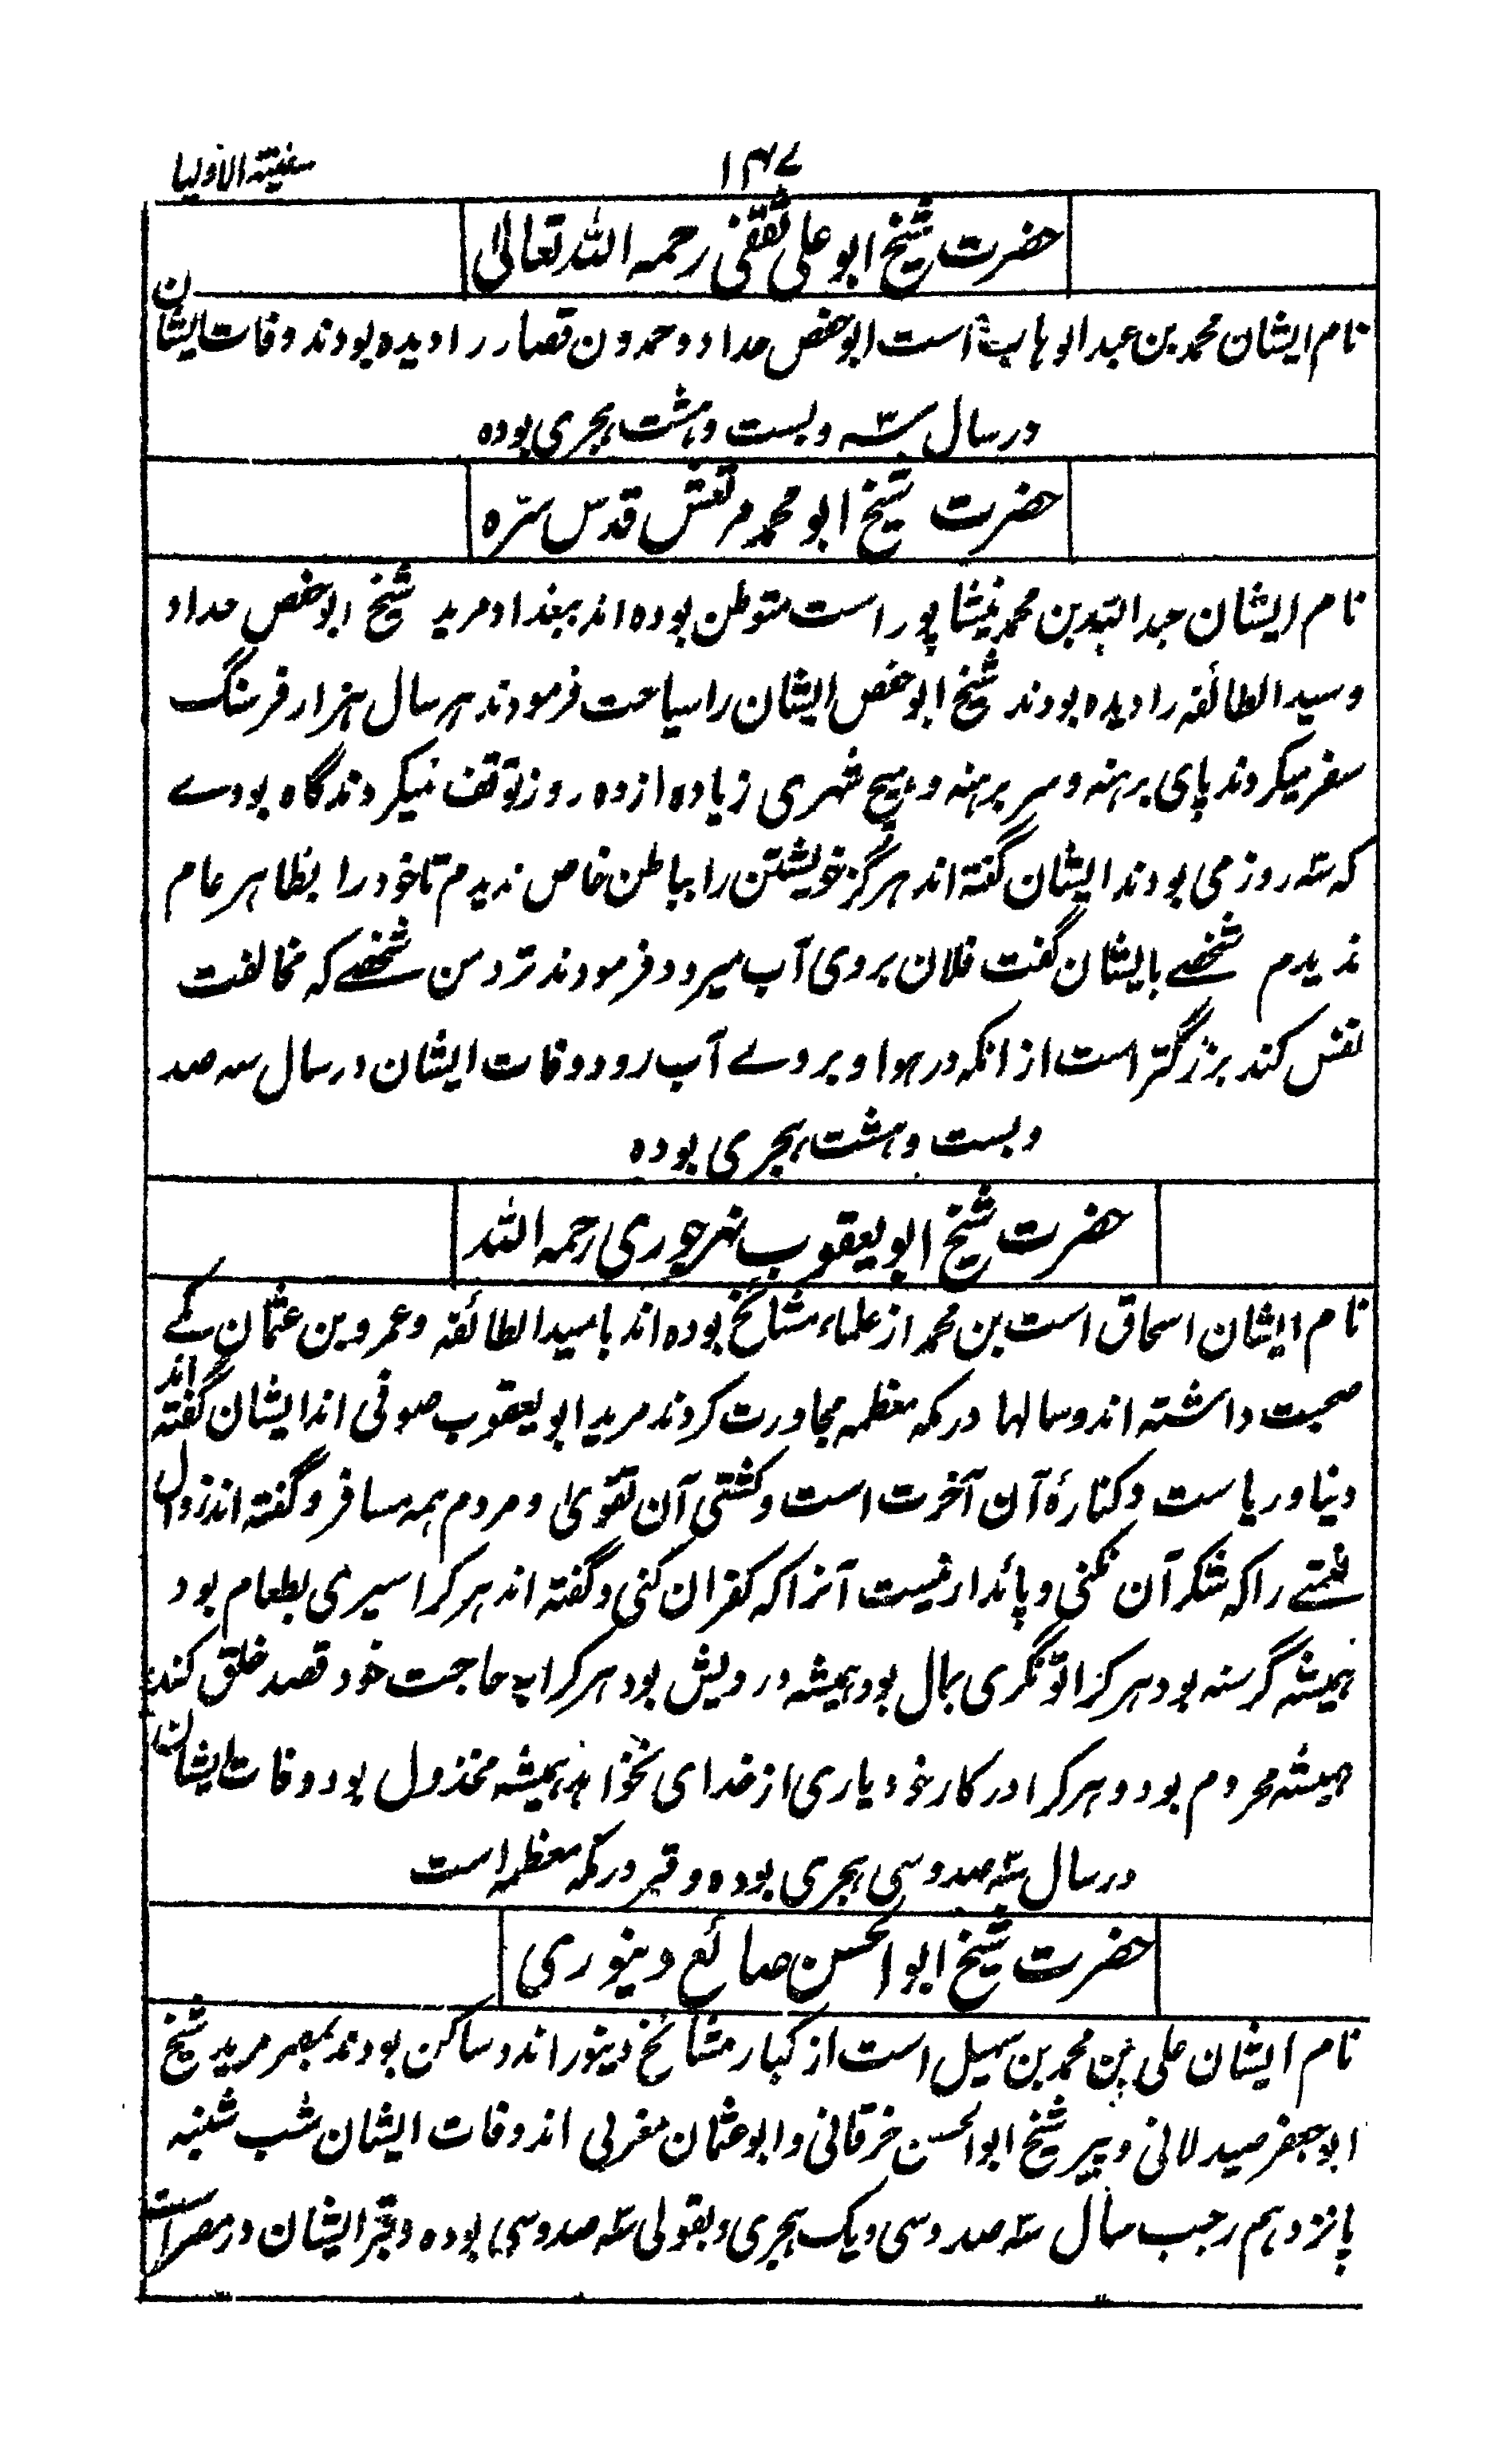 سفینة الاولیا
۱۴۷
حضرت شیخ ابو علی ثقفی رحمه الله تعالیٰ
نام ایشان محمد بن عبد الوهاب است ابو حفص حداد و حمدون قصار را دیده بودند وفات ایشان
در سال سه و بست و هشت هجری بوده
حضرت شیخ ابو محمد مرتعش قدس سرّه
نام ایشان عبد الله بن محمد نیشاپور است متوطن بوده اند ببغداد مرید شیخ ابو حفص حداد
و سید الطائفه را دیده بودند شیخ ابو حفص ایشان را سیاحت فرمودند هر سال هزار فرسنگ
سفر میکردند پای برهنه و سر برهنه و بهیچ شهری زیاده از ده روز توقف نمیکردند گاه بودے
که سه روز می بودند ایشان گفته اند هرگز خویشتن را بباطن خاص ندیدم تا خود را بظاهر عام
ندیدم شخصے بایشان گفت فلان بروی آب میرود فرمودند نزد من شخصے که مخالفت
نفس کند بزرگتر است از انکه در هوا و بروے آب رود وفات ایشان در سال سه صد
و بست و هشت هجری بوده
حضرت شیخ ابو یعقوب نهرجوری رحمه الله
نام ایشان اسحاق است بن محمد از علماء مشائخ بوده اند با سید الطائفه و عمرو بن عثمان مکے
صحبت داشته اند و سالها در مکه معظمه مجاورت کردند مرید ابو یعقوب صوفی اند ایشان گفته اند
دنیا دریاست و کنارهٔ آن آخرت است و کشتی آن تقویٰ و مردم همه مسافر و گفته اند زوال
نعمتے را که شکر آن نکنی و پائدار نیست آنرا که کفران کنی و گفته اند هر کرا سیری بطعام بود
همیشه گرسنه بود هر کرا تونگری بمال بود همیشه درویش بود هر کرا به حاجت خود قصد خلق کند
همیشه محروم بود و هر کرا در کار خود یاری از خدای نخواهد همیشه مخذول بود وفات ایشان
در سال سه صد و سی هجری بوده و قبر در مکه معظمه است
حضرت شیخ ابو الحسن صائع دینوری
نام ایشان علی بن محمد بن سهیل است از کبار مشائخ دینور اند و ساکن بودند بمصر مرید شیخ
ابو جعفر صیدلانی و پیر شیخ ابو الحسین خرقانی و ابو عثمان مغربی اند وفات ایشان شب شنبه
پانزدهم رجب سال سه صد و سی و یک هجری و بقولی سه صد و سی بوده و قبر ایشان در مصر است